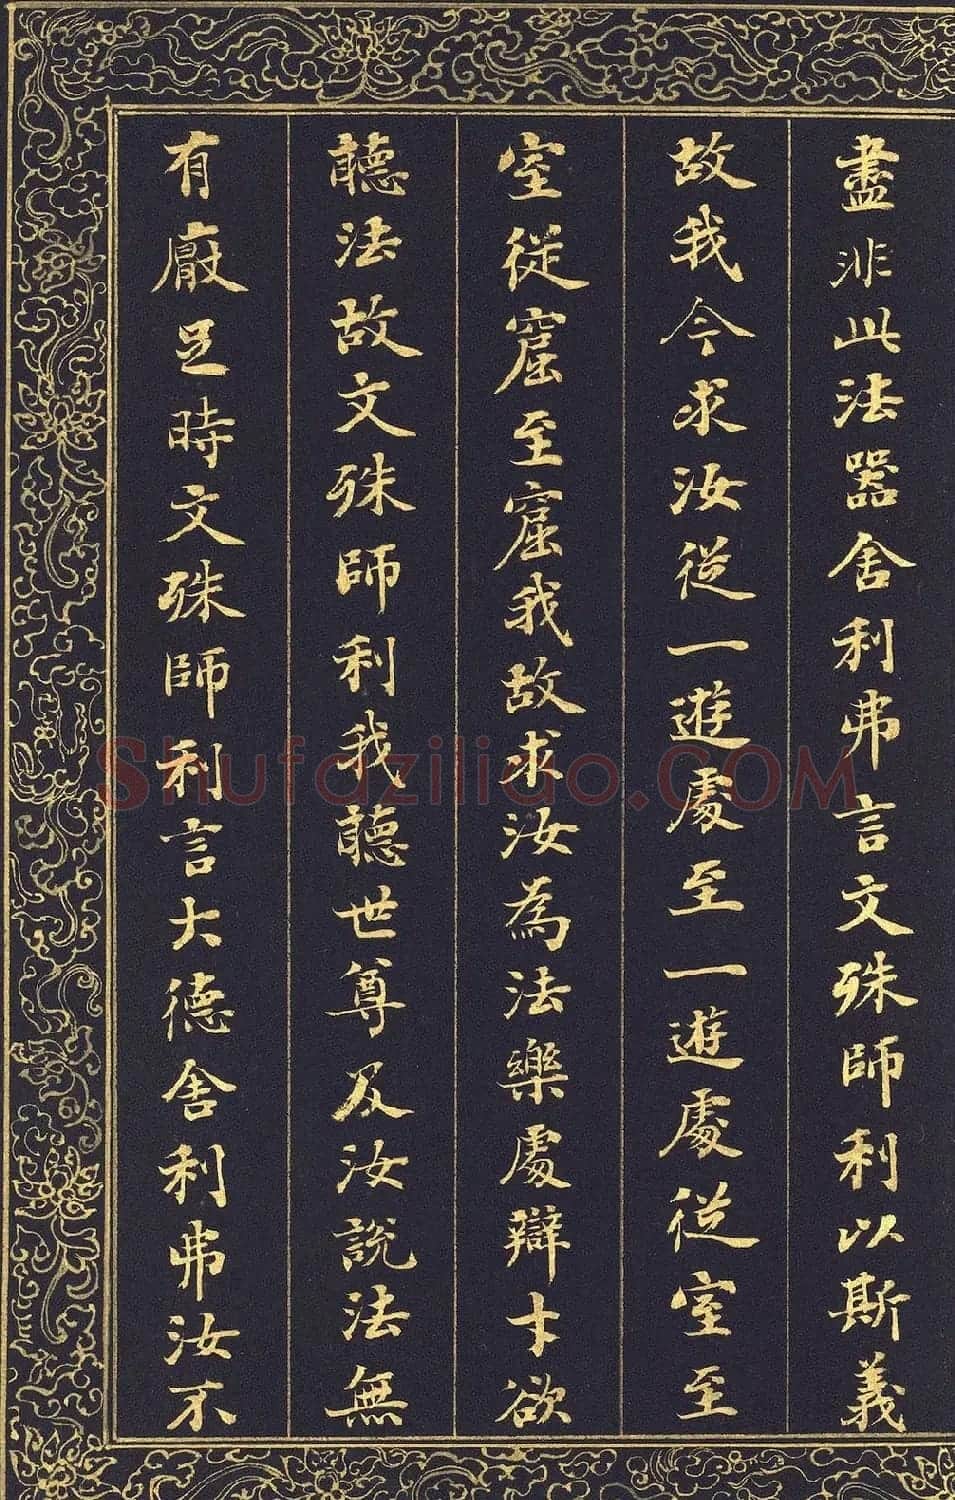 盡非此法器舍利弗言文殊師利以斯義
故我今求汝從一遊處至一遊處從室至
室從窟至窟我故求汝為法樂處辯才欲
聽法故文殊師利我聽世尊及汝說法無
有厭足時文殊師利言大德舍利弗汝不
Shufaziliao.COM